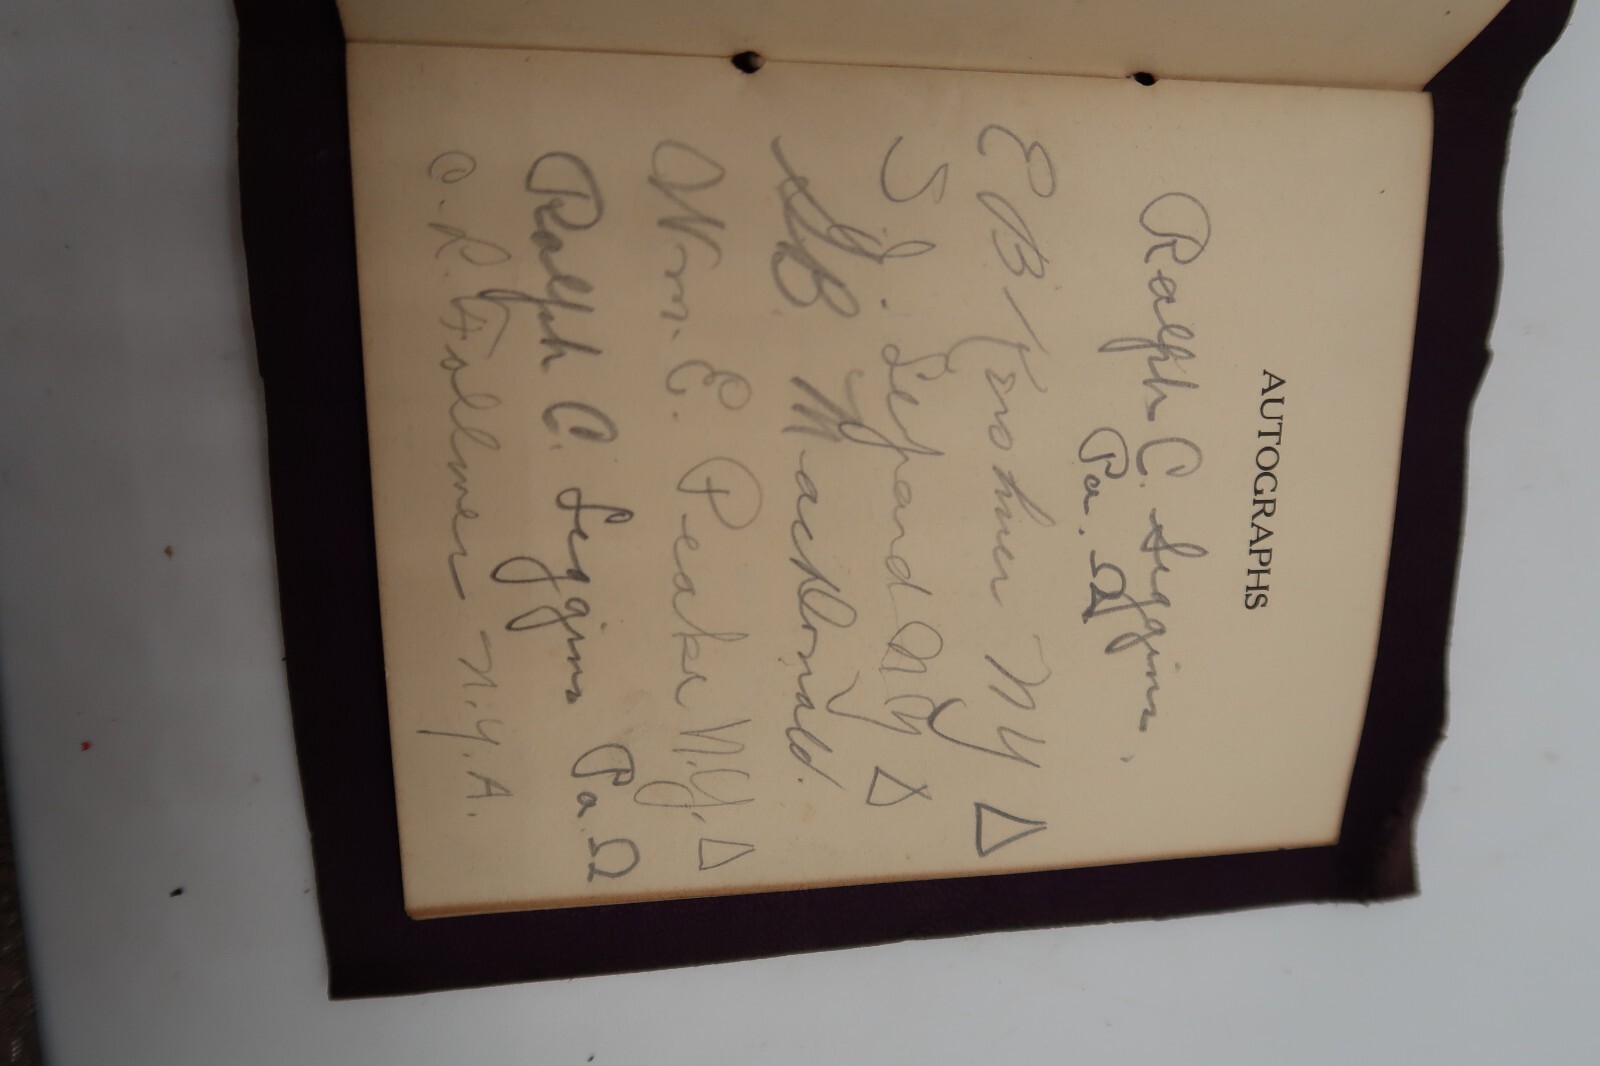 AUTOGRAPHS
Ralph C. Leggins.
Pa. Ω
E B Kroshner NY Δ
S. J. Lepand NY Δ
MacDonald.
Wm. E. Peake N.Y. Δ
Ralph C. Leggins Pa. Ω
C. R. Follmer N.Y.A.